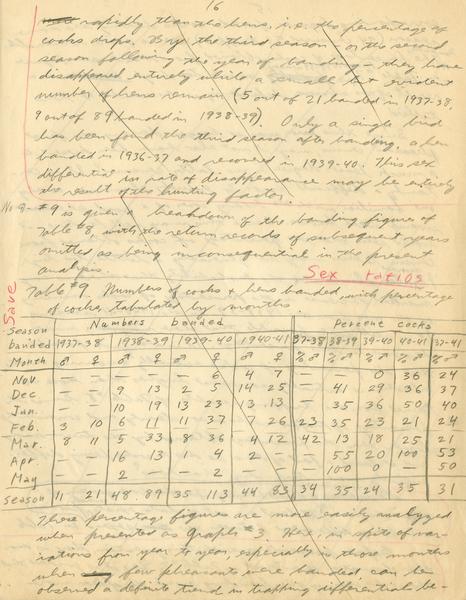 16
rapidly than the hens, i.e. the percentage of
cocks drops. By the third season - or the second
season following the year of banding - they have
disappeared entirely while a small but evident
number of hens remain (5 out of 21 banded in 1937-38,
9 out of 89 banded in 1938-39). Only a single bird
has been found the third season after banding, a hen
banded in 1936-37 and recovered in 1939-40. This sex
differential in rate of disappearance may be entirely
the result of the hunting factor.
#9 is given a breakdown of the banding figures of
Table #8, with the return records of subsequent years
omitted as being inconsequential in the present
analysis.
Sex ratios
Save
Table #9. Numbers of cocks & hens banded, with percentage
of cocks, tabulated by months.
Season Numbers banded Percent cocks
banded 1937-38 1938-39 1939-40 1940-41 37-38 38-39 39-40 40-41 37-41
Month ♂ ♀ ♂ ♀ ♂ ♀ ♂ ♀ %♂ %♂ %♂ %♂ %♂
Nov. — — — — — 6 4 7 — — 0 36 24
Dec — — 9 13 2 5 14 25 — 41 29 36 37
Jan. — — 10 19 13 23 13 13 — 35 36 50 40
Feb. 3 10 6 11 11 37 7 26 23 35 23 21 24
Mar. 8 11 5 33 8 36 4 12 42 13 18 25 21
Apr. — — 16 13 1 4 2 — — 55 20 100 53
May — — 2 — — 2 — — — 100 0 — 50
Season 11 21 48 89 35 113 44 83 34 35 24 35 31
These percentage figures are more easily analyzed
when presented as Graph #3. Here, in spite of var-
iations from year to year, especially in those months
when few pheasants were banded can be
observed a definite trend in trapping differential be-